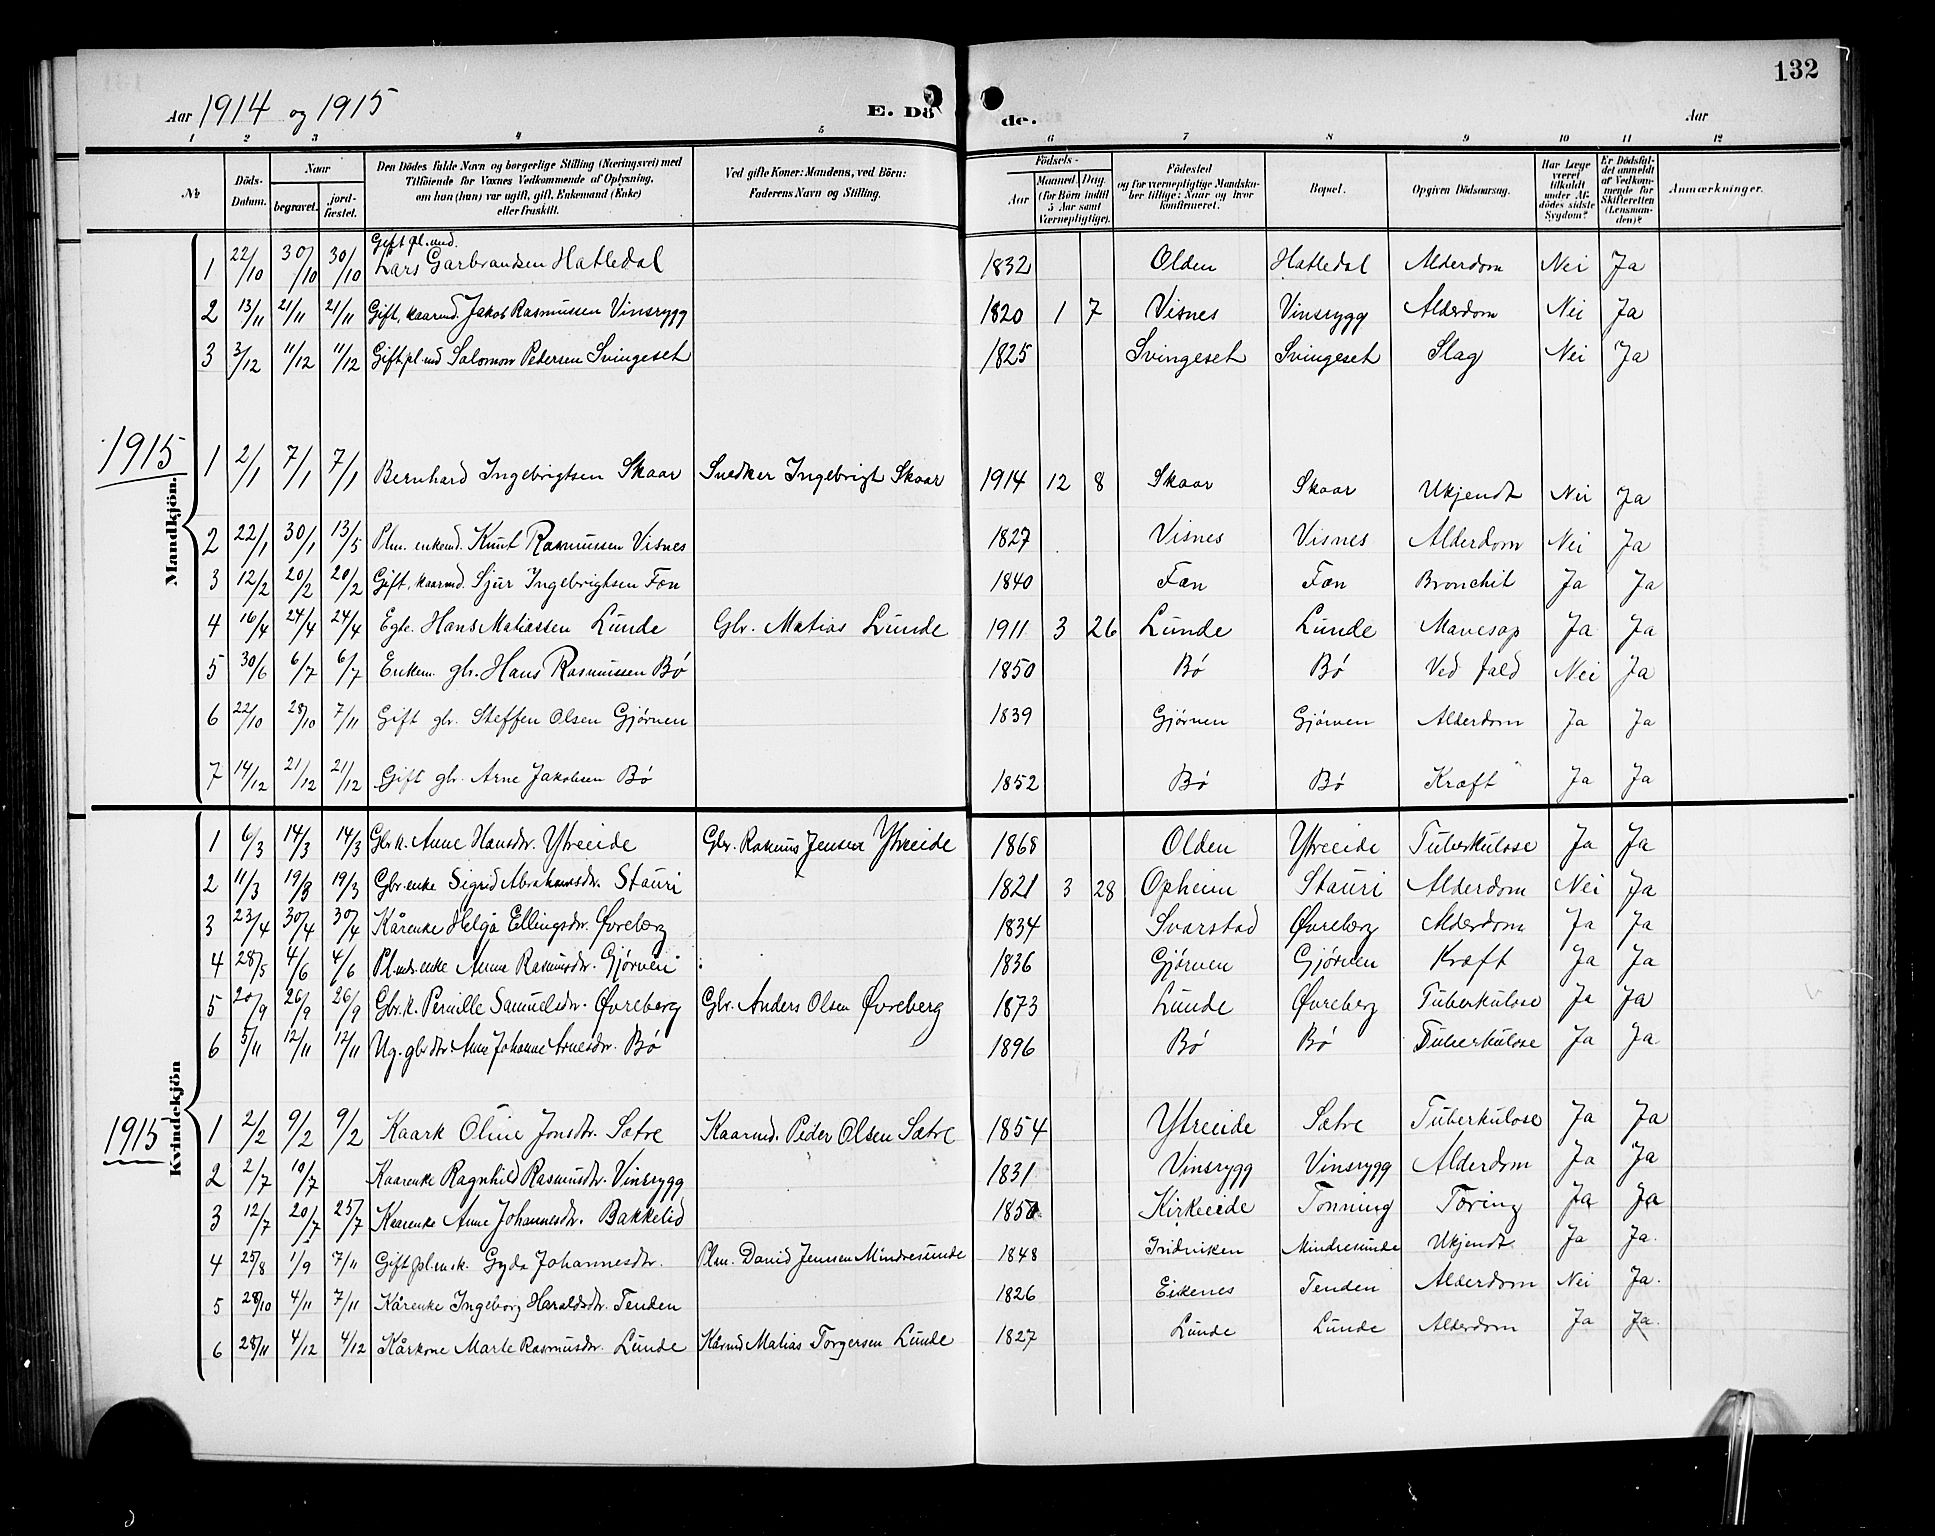 132
Aar 1914 og 1915 E. Dö de. Aar
1 2 3 4 5 6 7 8 9 10 11 12
№ Döds-Datum. Naar begravet. jordfæstet. Den Dödes fulde Navn og borgerlige Stilling (Næringsvei) med Tilföiende for Voxnes Vedkommende af Oplysning, om han (hun) var ugift, gift, Enkemand (Enke) eller fraskilt. Ved gifte Koner: Mandens, ved Börn: Faderens Navn og Stilling. Födsels- Aar Maaned. Dag. (for Börn indtil 5 Aar samt Værnepligtige). Födested og for værnepligtige Mandskaber tillige: Naar og hvor konstitueret. Bopæl. Opgiven Dödsaarsag. Har Læge været tilkaldt under Afdödes sidste Sygdom? Er Dödsfaldet anmeldt af Vedkommende for Skifteretten (Lensmanden)? Anmærkninger.
Mandkjön.
1 22/10 30/10 30/10 Gift pl.md. Lars Garbrandsen Hatledal 1832 Olden Hatledal Alderdom Nei Ja
2 13/11 21/11 21/11 Gift, kaarmd. Jakob Rasmussen Vinsrygg 1820 1 7 Visnes Vinsrygg Alderdom Nei Ja
3 3/12 11/12 11/12 Gift pl.md Salomon Pedersen Svingeset 1825 Svingeset Svingeset Slag Nei Ja
1915
1 2/1 7/1 7/1 Bernhard Ingebrigtsen Skaar Snedker Ingebrigt Skaar 1914 12 8 Skaar Skaar Ukjendt Nei Ja
2 22/1 30/1 13/5 Plm. enkemd. Knut Rasmussen Visnes 1827 Visnes Visnes Alderdom Nei Ja
3 12/2 20/2 20/2 Gift, kaarmd. Sjur Ingebrigtsen Fæn 1840 Fæn Fæn Bronchit Ja Ja
4 16/4 24/4 24/4 Egte. Hans Matiassen Lunde Gbr. Matias Lunde 1911 3 26 Lunde Lunde Mavesap Ja Ja
5 30/6 6/7 6/7 Enkem. gbr. Hans Rasmussen Bø 1850 Bø Bø Ved fald Nei Ja
6 22/10 28/10 7/11 Gift gbr. Steffen Olsen Gjørven 1839 Gjørven Gjørven Alderdom Ja Ja
7 14/12 21/12 21/12 Gift gbr. Arne Jakobsen Bø 1852 Bø Bø Kræft Ja Ja
Kvindekjön
1 6/3 14/3 14/3 Gbr.k. Anne Hansdtr. Ytreeide Gbr. Rasmus Jensen Ytreeide 1868 Olden Ytreeide Tuberkulose Ja Ja
2 11/3 19/3 19/3 Gbr.enke Sigrid Abrahamsdtr. Stauri 1821 3 28 Opheim Stauri Alderdom Nei Ja
3 23/4 30/4 30/4 Kårenke Helga Ellingsdtr. Øvreberg 1834 Svarstad Øvreberg Alderdom Ja Ja
4 28/5 4/6 4/6 Pl.mds.enke Anna Rasmusdtr. Gjørven 1836 Gjørven Gjørven Kræft Ja Ja
5 20/9 26/9 26/9 Gbr.k. Pernille Samuelsdtr. Øvreberg Gbr. Anders Olsen Øvreberg 1873 Lunde Øvreberg Tuberkulose Ja Ja
6 5/11 12/11 12/11 Ug. gbr.dtr. Anne Johanne Arnesdtr. Bø 1896 Bø Bø Tuberkulose Ja Ja
1915
1 2/2 9/2 9/2 Kaark Oline Jonsdtr. Sætre Kaarmd. Peder Olsen Sætre 1854 Ytreeide Sætre Tuberkulose Ja Ja
2 2/7 10/7 Kaarenke Ragnhild Rasmusdtr. Vinsrygg 1831 Vinsrygg Vinsrygg Alderdom Ja Ja
3 12/7 20/7 25/7 Kaarenke Anne Johannesdtr. Bakkelid Kirkeeide Tonning Tæring Ja Ja
4 25/8 1/9 7/11 Gift pl.m.k. Gyda Johannesdtr. Plm. David Jenssen Mindresunde 1848 Indviken Mindresunde Ukjendt Ja Ja.
5 28/10 4/11 7/11 Kårenke Ingeborg Haraldsdtr. Tenden 1826 Eikenes Tenden Alderdom Nei Ja.
6 28/11 4/12 4/12 Kårkone Marte Rasmusdtr. Lunde Kårmd Matias Torgersen Lunde 1827 Lunde Lunde Alderdom Ja Ja.